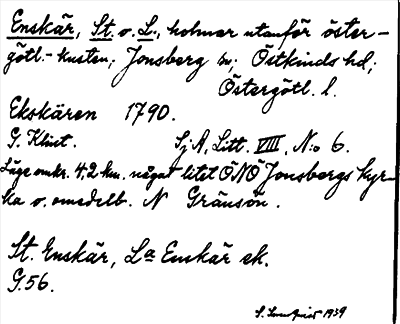 Enskär, St. o. L., holmar utanför öster-
götl.-kusten; Jonsberg sn; Östkinds hd;
Östergötl. l.
Ekskären 1790.
G. Klint. SjA, Litt. VIII, N:o 6.
Läge omkr. 4,2 km. något litet ÖNÖ Jonsbergs kyr-
ka o. omedelb. N Gränsön.
St. Enskär, La Enskär ek.
G.56.
S. 1939